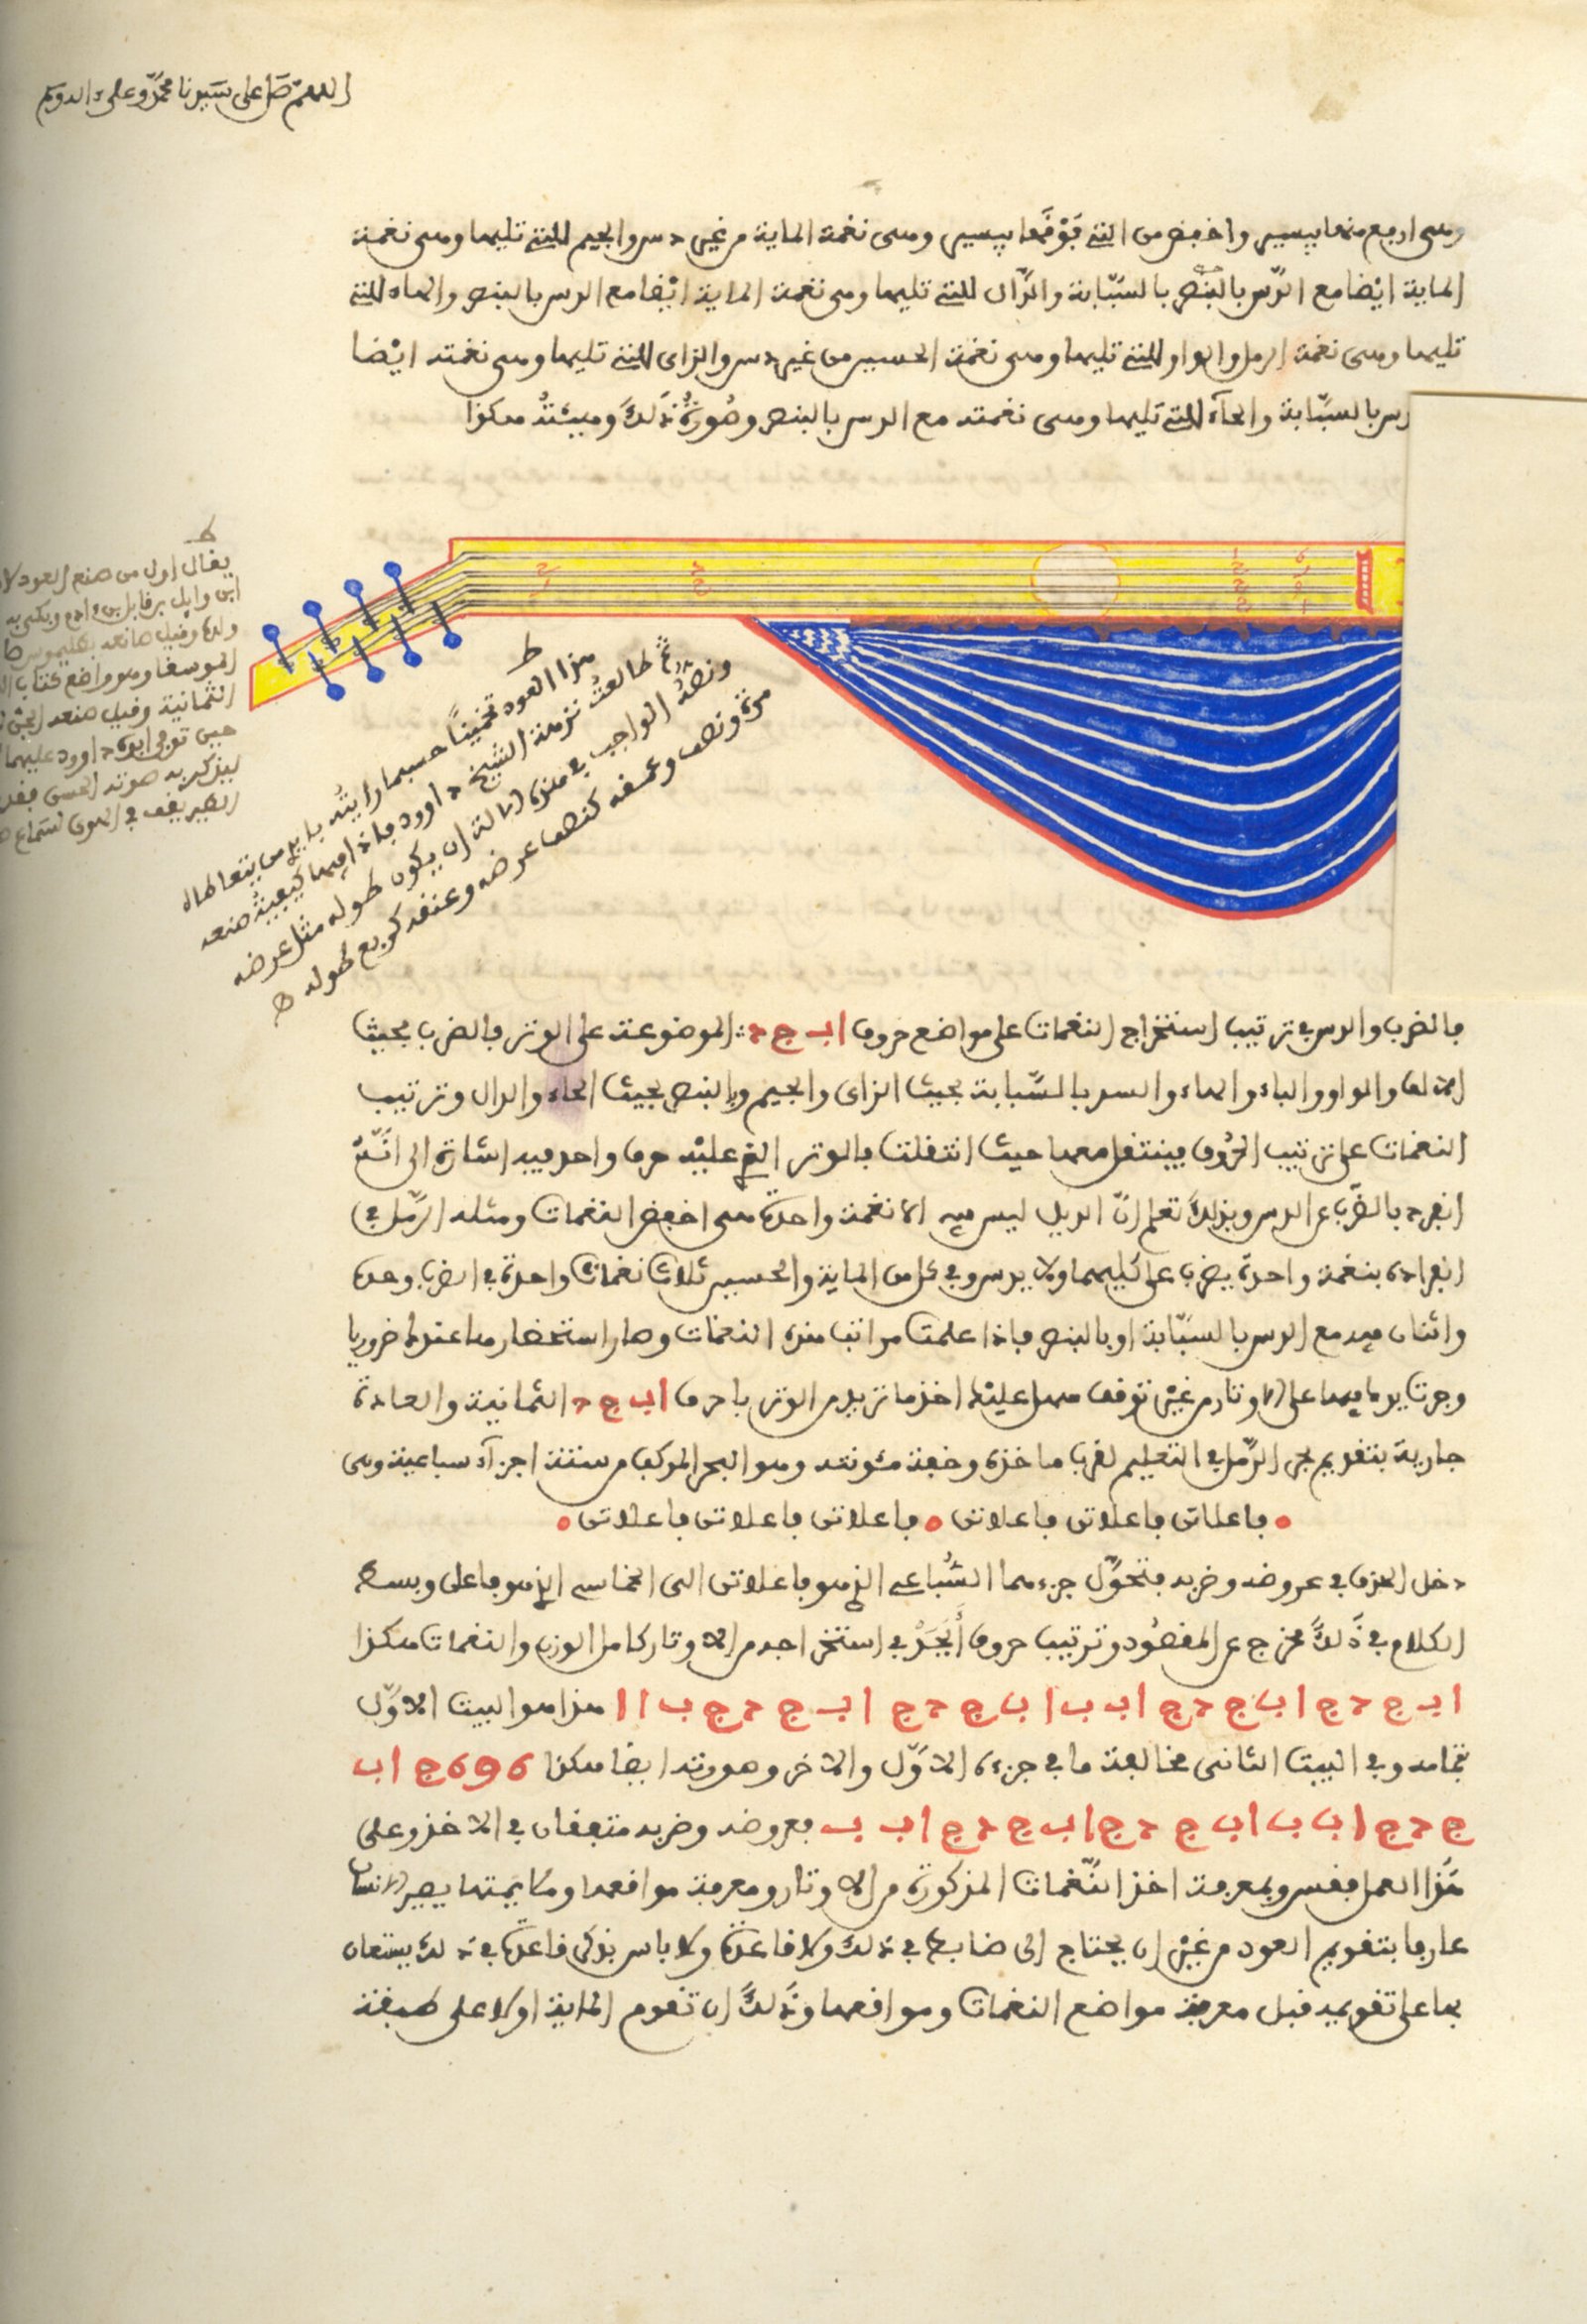 اللهم صل على سيدنا محمد وعلى ءاله وسلم
وهى ارفع منها بيسير واخفض من التى فوقها بيسير وهى نغمة الماية من غير دس والجيم للتى تليها وهى نغمة
الماية ايضا مع الدس بالبنصر بالسبابة والدال للتى تليها وهى نغمة الماية ايضا مع الدس بالبنصر والهاء للتى
تليها وهى نغمة الرمل والواو للتى تليها وهى نغمة الحسين من غير دس والزاى للتى تليها وهى نغمته ايضا
دس بالسبابة والحاء للتى تليها وهى نغمته مع الدس بالبنصر وصورة ذلك وهيئته هكذا
ط
يقال اول من صنع العود
ابن قابيل بن ءادم وبكى به
ولده وقيل صانعه بطليموس
الموسيقا وهو واضع كتاب
الثمانية وقيل صنعه
حين توفى ابوه داوود عليهما
ليذكر به صوته الحسن فقد
الطير يقف فى الهوى لسماع
ط
هذا العود تخمينا حسبما رايته بايدى من يتعاطاه
ثم طالعت نزهة الشيخ داوود فاذا فيها كيفية صنعه
ونصه الواجب فى هذه الالة ان يكون طوله مثل عرضه
مرة ونصف وعمقه كنصف عرضه وعنقه كربع طوله
فالضرب والدس فى ترتيب استخراج النغمات على مواضع حروف ا ب ج د الموضوعة على الوتر فالضرب بحيث
الالف والواو والباء والهاء والدس بالسبابة بحيث الزاى والجيم وبالبنصر بحيث الحاء والدال وترتيب
النغمات على ترتيب الحروف فينتقل معها حيث انتقلت فالوتر الذى عليه حرف واحد فيه اشارة الى انه
انفرد بالضرب عن الدس وبذلك تعلم ان الذيل ليس فيه الا نغمة واحدة هى اخفض النغمات ومثله الرمل فى
انفراده بنغمة واحدة يضرب على كليهما ولا يدس وفى كل من الماية والحسين ثلاث نغمات واحدة فى الضرب وحده
واثنان فيه مع الدس بالسبابة او بالبنصر فاذا علمت مراتب هذه النغمات وصار استحضارها عندك ضروريا
وجرت يدك فيها على الاوتار من غير توقف سهل عليك اخذ ما تريد من الوتر باحرف ا ب ج د الثمانية والعادة
جارية بتقويم بحر الرمل فى التعليم لقرب ماخذه وخفة مئونته وهو البحر المركب من ستة اجزاء سباعية وهى
فاعلاتن فاعلاتن فاعلاتن • فاعلاتن فاعلاتن فاعلاتن
دخل الحذف فى عروضه وضربه فتحول جزءهما السباعى الذى هو فاعلاتن الى الخماسى الذى هو فاعلن وبسط
الكلام فى ذلك مخرج عن المقصود وترتيب حروف ابجد فى استخراجه من الاوتار كامل الوزن والنغمات هكذا
ا ب ج د ج ا ب ج د ج ا ب ب ا ب ج د ج ا ب ج د ج ب ا ا هذا هو البيت الاول
بتمامه وفى البيت الثانى مخالفة ما فى جزءه الاول والاخر وصورته ايضا هكذا و و و ج ا ب
ج د ج ا ب ب ا ب ج د ج ا ب ج د ج ا ب ب فعروضه وضربه متفقان فى الاخذ وعلى
هذا العمل فقس وبمعرفة اخذ النغمات المذكورة من الاوتار ومعرفة مواقعها يصير الانسان
عارفا بتقويم العود من غير ان يحتاج الى ضابط فى ذلك ولا قاعدة ولا باس بذكر قاعدة فى ذلك يستعان
بها على تقويمه قبل معرفة مواضع النغمات ومواقعها وذلك ان تقوم الماية اولا على طبقة